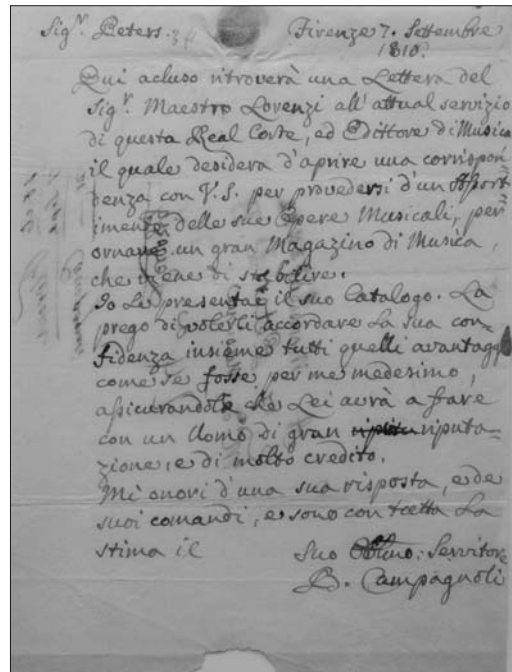 Sigʳ. Peters. Firenze 7. Settembre
1810.
Qui acluso ritroverà una Lettera del
Sigʳ. Maestro Lorenzi all'attual servizio
di questa Real Corte, ed Edittore di Musica
il quale desidera d'aprire una corrispon
denza con V.S. per provedersi d'un Assort
imento delle sue Opere Musicali, per
ornare un gran Magazino di Musica,
che viene di stabilire.
Io Le presentai il suo Catalogo. La
prego di volerli accordare La sua con=
fidenza insieme tutti quelli avantaggi
come se fosse per me medesimo,
assicurandola che Lei avrà a fare
con un Uomo di gran riputa=
zione, e di molto credito.
Mi onori d'una sua risposta, e de
suoi comandi, e sono con tutta La
stima il Suo Servitore
B. Campagnoli